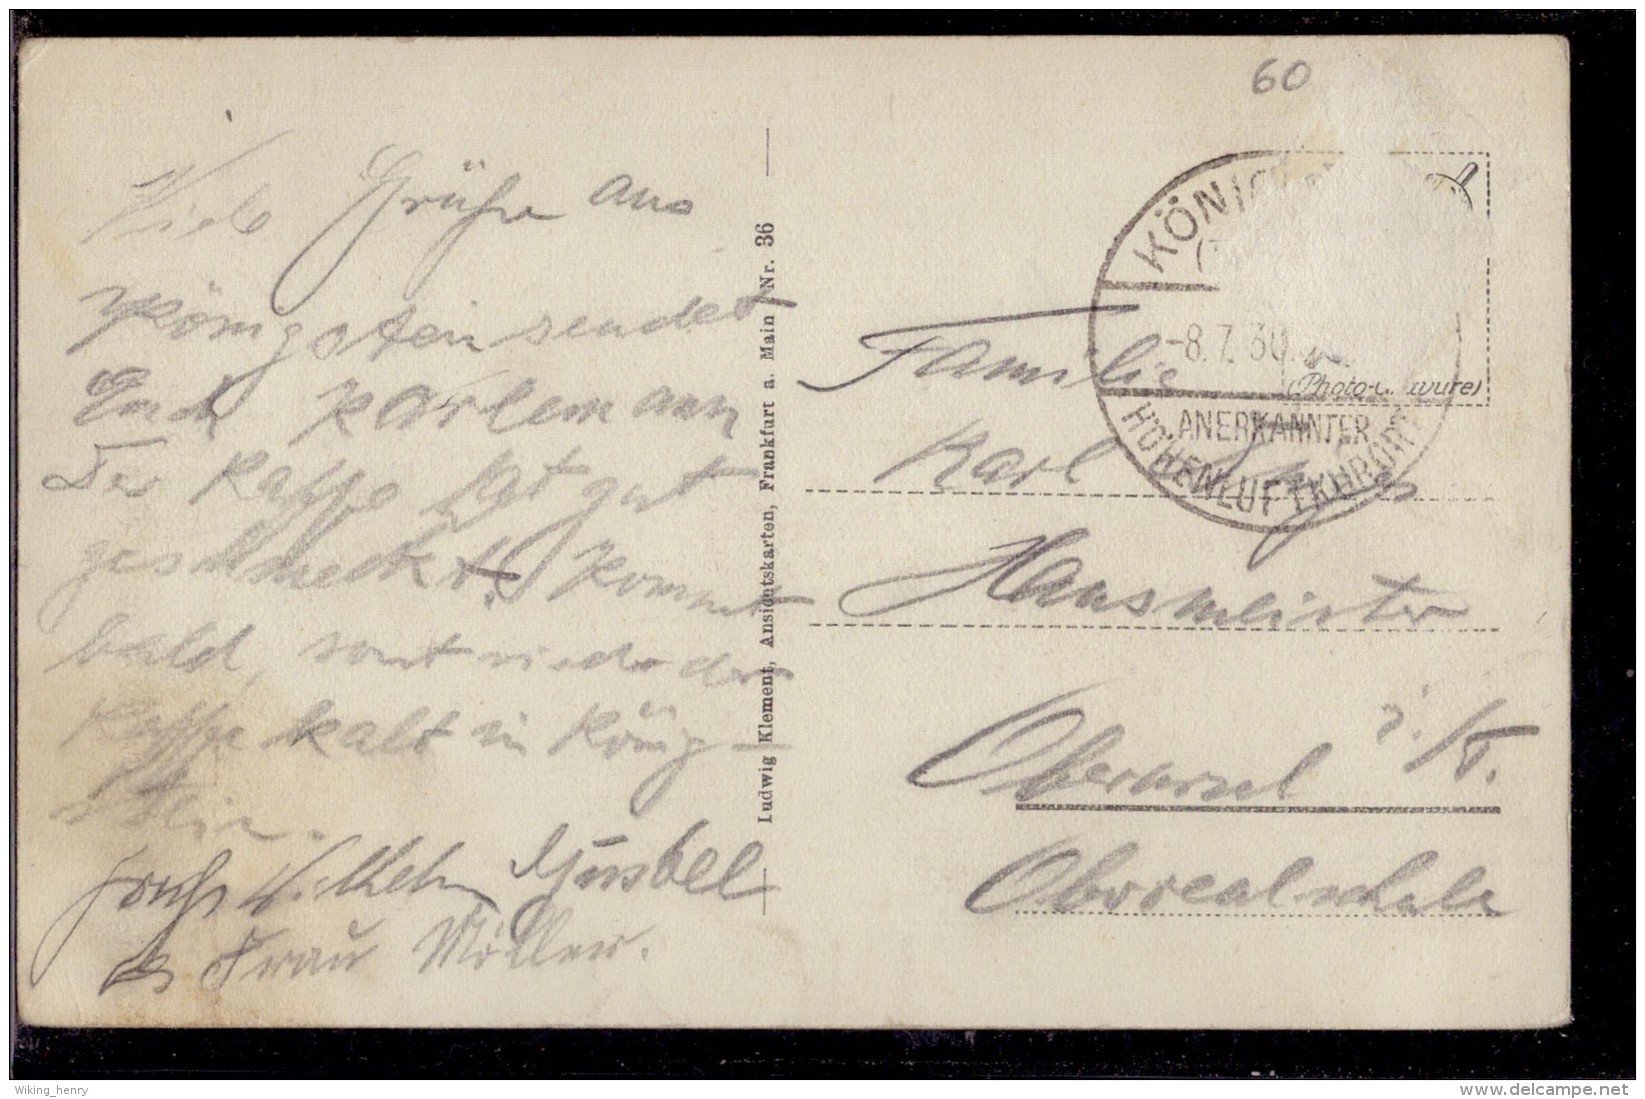 60
Viele Grüße aus
Königstein sendet
Euch Karlemann
Der Kaffe hat gut
geschmeckt. Kommt
bald, sonst wird der
Kaffe kalt in König-
stein.
Wilhelm
Frau Möller.
Ludwig Klement, Ansichtskarten, Frankfurt a. Main Nr. 36
KÖNIG
-8.7.30
ANERKANNTER
HÖHENLUFTKURORT
(Photo-
wure)
Familie
Karl
Hausmeister
Oberursel i./T.
Oberrealschule
Wiking_henry
www.delcampe.net